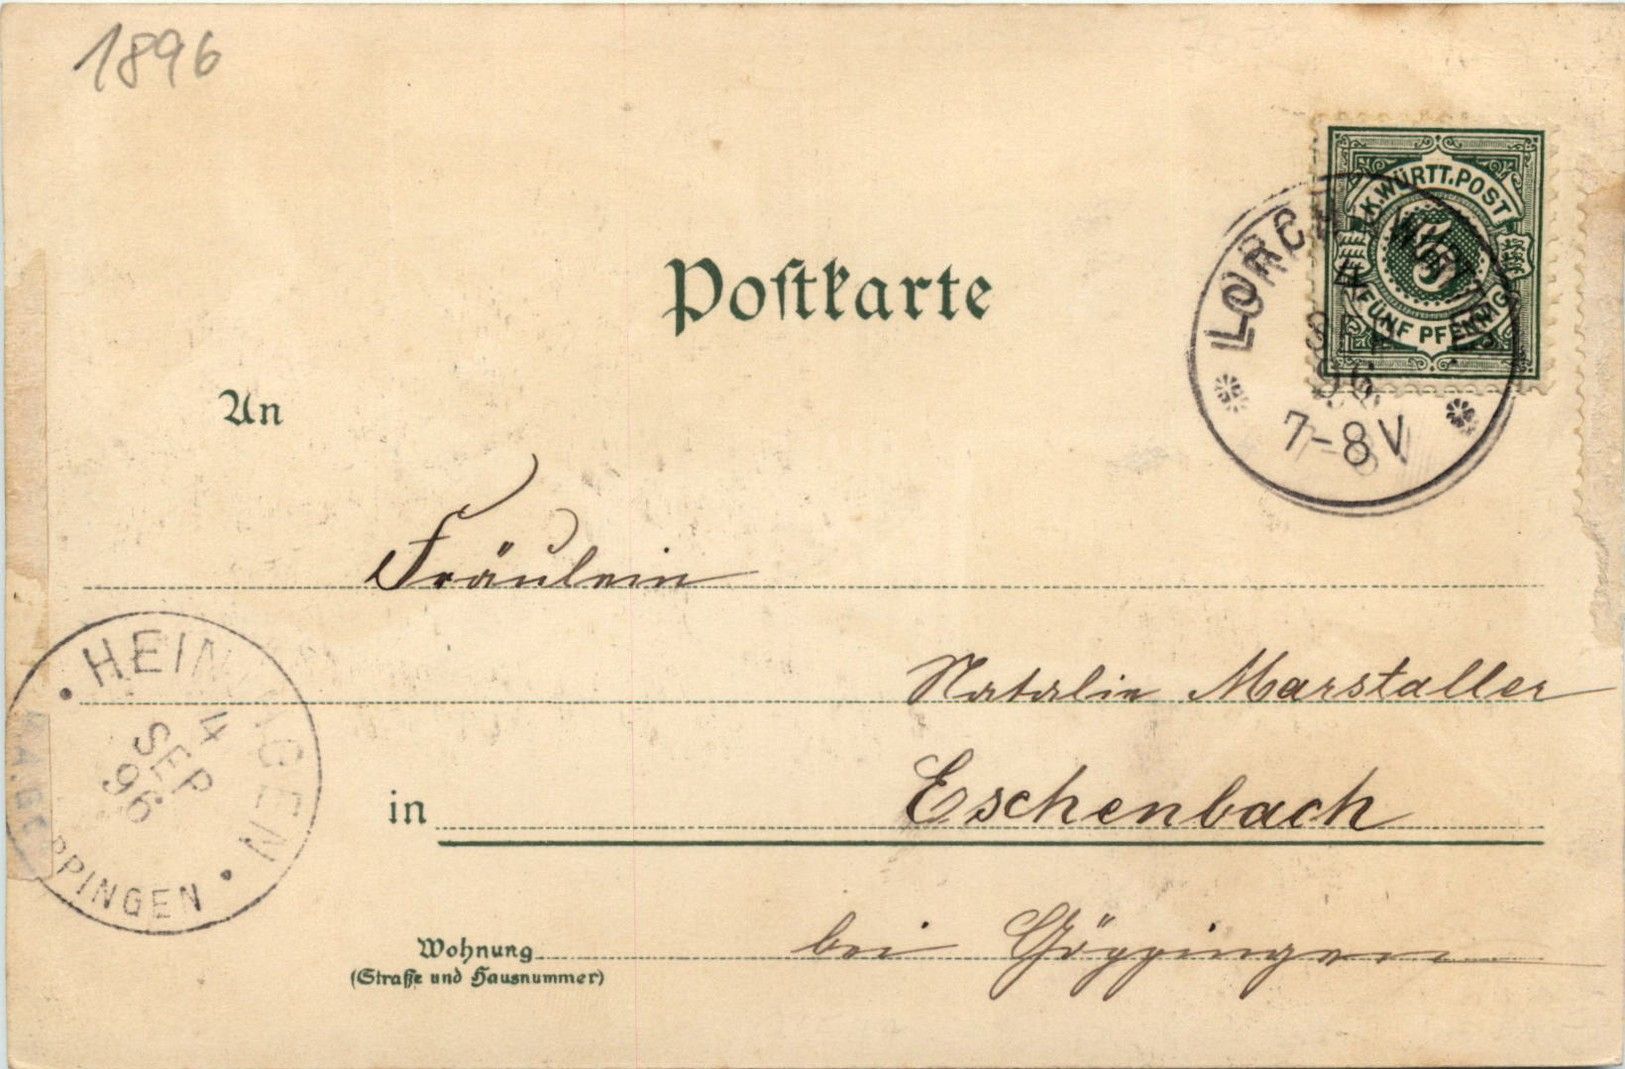 1896
Postkarte
K.WÜRTT.POST
5
FÜNF PFENNIG
LORCH
4
SEP
96
7-8 V
An
Fräulein
Natalie Marstaller
in Eschenbach
Wohnung bei Göppingen
(Straße und Hausnummer)
HEININGEN
4
SEP
96
O.A.GÖPPINGEN